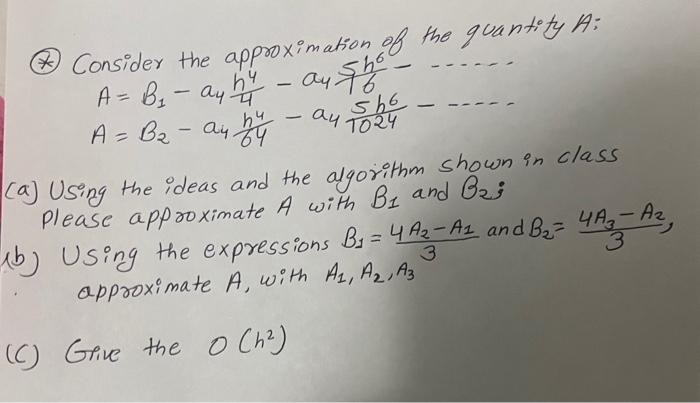 * Consider the approximation of the quantity A:
A = B1 - a4 h^4/4 - a4 5h^6/16 - ------
A = B2 - a4 h^4/64 - a4 5h^6/1024 - -----
(a) Using the ideas and the algorithm shown in class
Please approximate A with B1 and B2;
(b) Using the expressions B1 = 4A2-A1/3 and B2 = 4A3-A2/3,
approximate A, with A1, A2, A3
(C) Give the O(h^2)